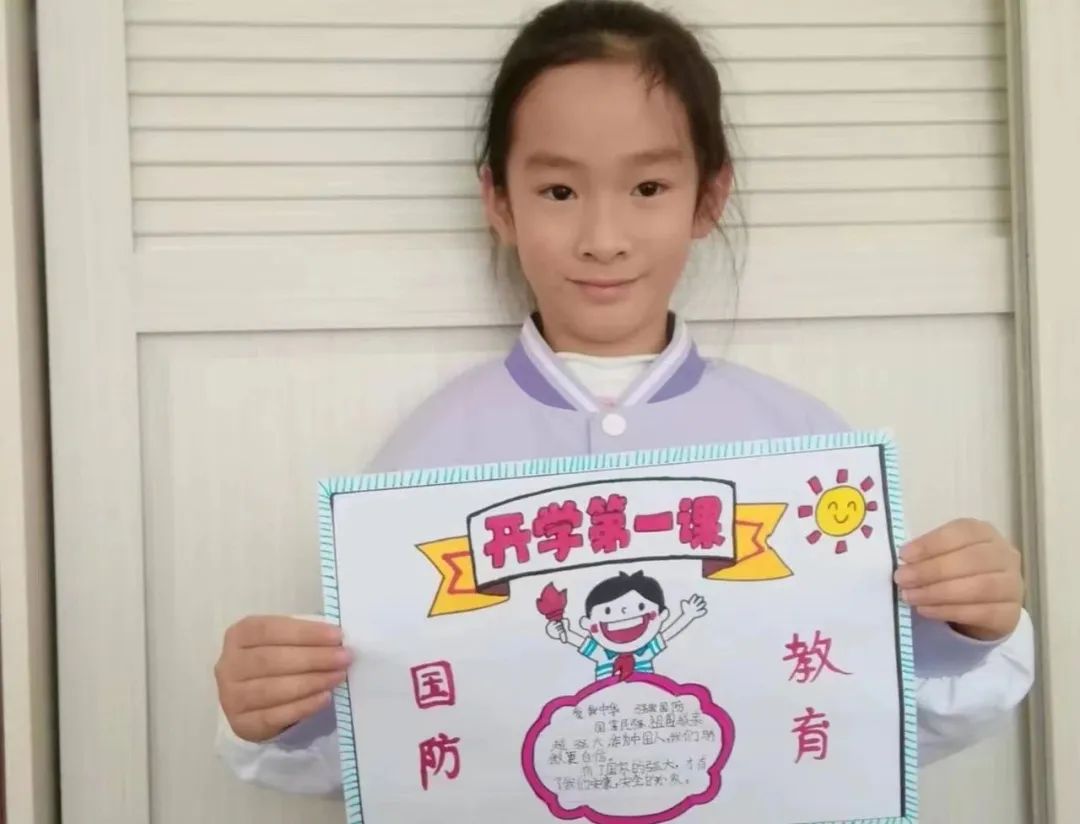 开学第一课
国防
教育
爱我中华 强我国防
国富民强,祖国越来
越强大,作为中国人,我们骄
傲更自信。
有了国家的强大,才有
了我们安康,安全的